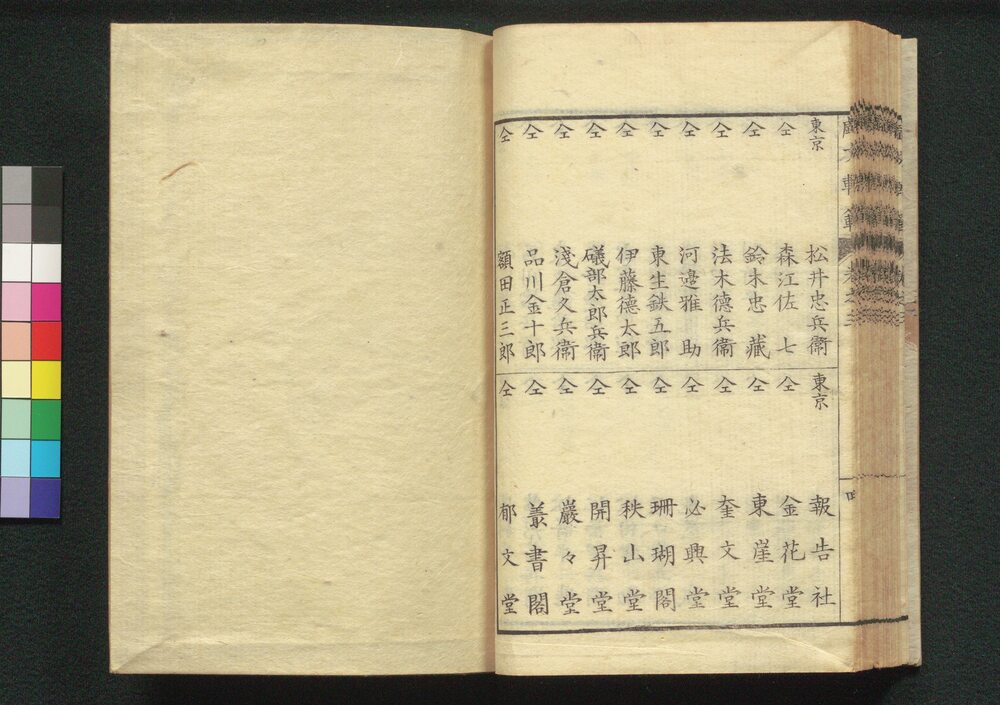 東京 松井忠兵衞
仝 森江佐七
仝 鈴木忠藏
仝 法木德兵衞
仝 河邉雅助
仝 東生鉄五郎
仝 伊藤德太郎
仝 礒部太郎兵衞
仝 淺倉久兵衞
仝 品川金十郎
仝 額田正三郎
東京 報告社
仝 金花堂
仝 東崖堂
仝 奎文堂
仝 必興堂
仝 珊瑚閣
仝 秩山堂
仝 開昇堂
仝 巖々堂
仝 叢書閣
仝 郁文堂